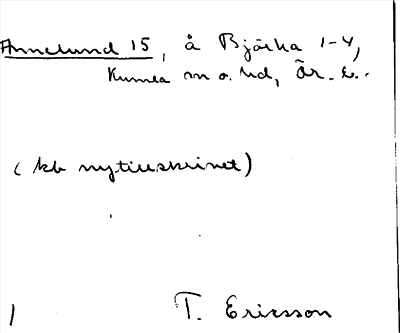 Annelund 15, å Bjärka 1-4,
Kumla sn o. hd, Ör. l..
(kb nytillskrivet)
T. Ericsson